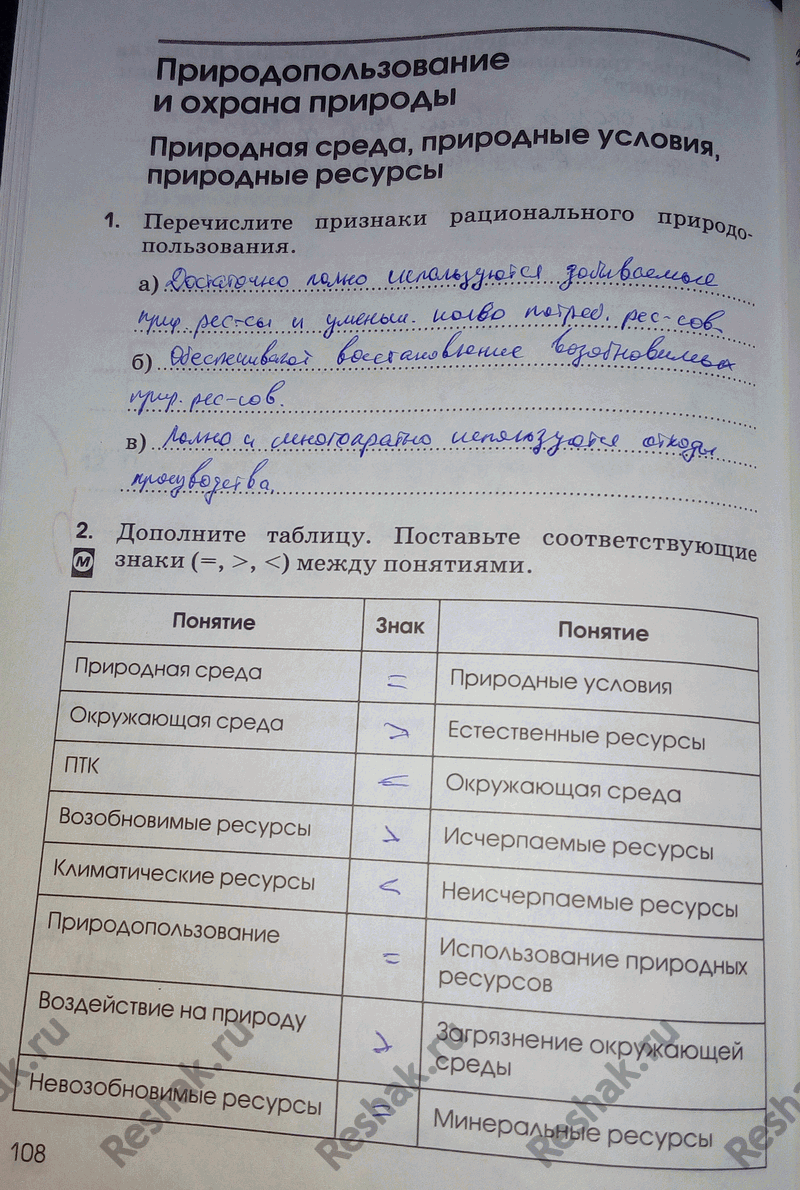 Природопользование
и охрана природы
Природная среда, природные условия,
природные ресурсы
1. Перечислите признаки рационального природо-
пользования.
а) Достаточно полно используются добываемые
прир. рес-сы и уменьш. колво потреб. рес-сов.
б) Обеспечивают восстановление возобновимых
прир. рес-сов.
в) Полно и многократно используются отходы
производства.
2. Дополните таблицу. Поставьте соответствующие
М знаки (=, >, <) между понятиями.
Понятие Знак Понятие
Природная среда = Природные условия
Окружающая среда > Естественные ресурсы
ПТК < Окружающая среда
Возобновимые ресурсы > Исчерпаемые ресурсы
Климатические ресурсы < Неисчерпаемые ресурсы
Природопользование = Использование природных
ресурсов
Воздействие на природу > Загрязнение окружающей
среды
Невозобновимые ресурсы = Минеральные ресурсы
108
ak.ru
Reshak.ru
Reshak.ru
Reshak.ru
Resh